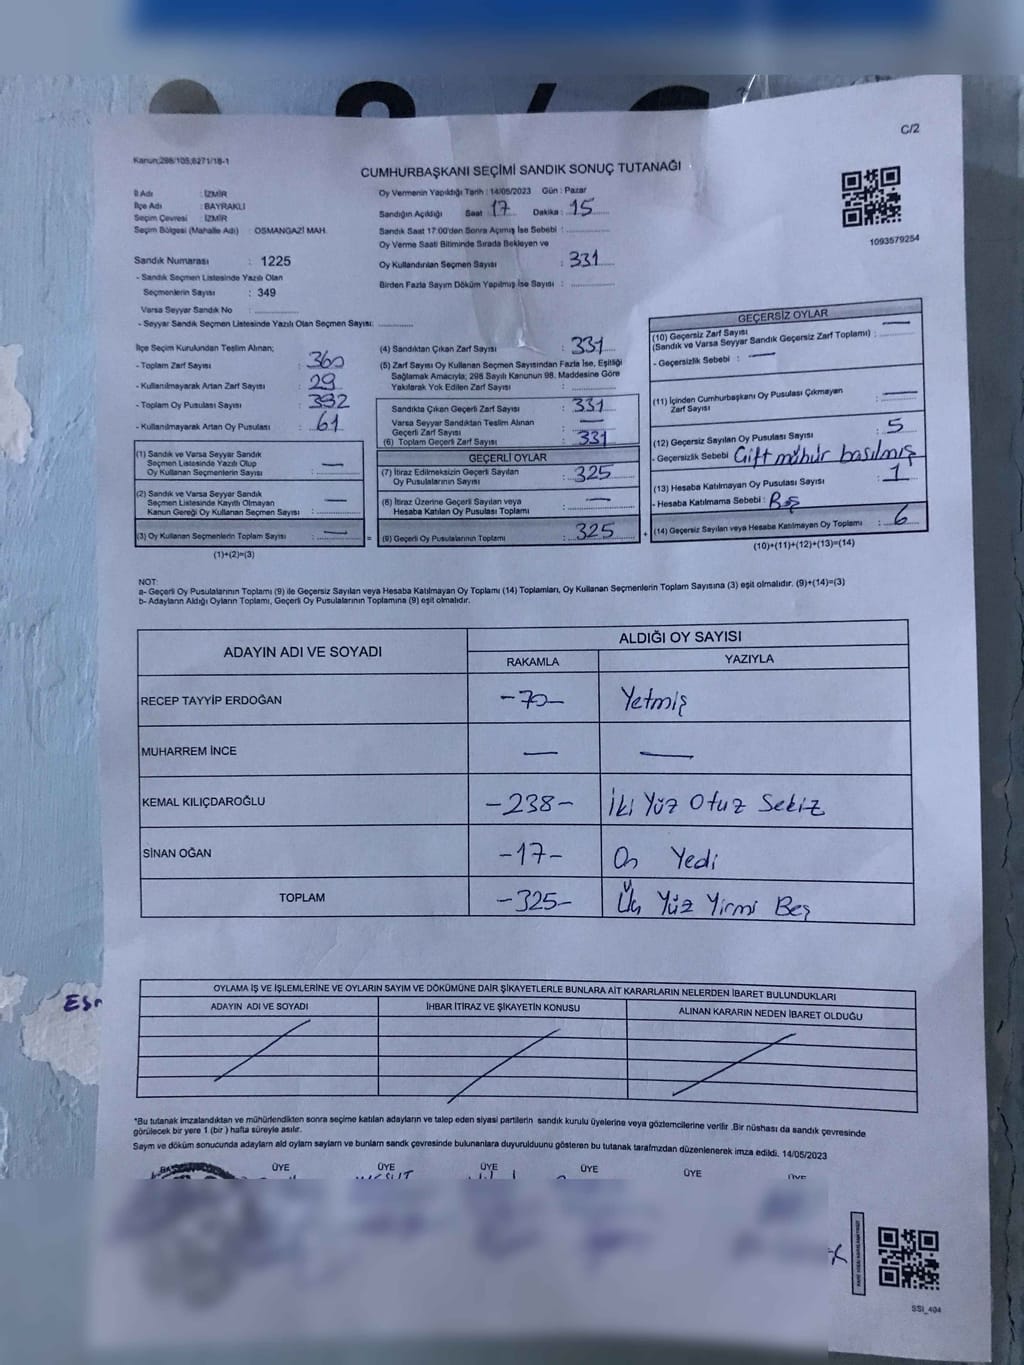 C/2
Kanun;298/105,6271/18-1
CUMHURBAŞKANI SEÇİMİ SANDIK SONUÇ TUTANAĞI
İl Adı : İZMİR
İlçe Adı : BAYRAKLI
Seçim Çevresi : İZMİR
Seçim Bölgesi (Mahalle Adı) : OSMANGAZİ MAH.
Sandık Numarası : 1225
- Sandık Seçmen Listesinde Yazılı Olan
Seçmenlerin Sayısı : 349
Varsa Seyyar Sandık No :
- Seyyar Sandık Seçmen Listesinde Yazılı Olan Seçmen Sayısı:
Oy Vermenin Yapıldığı Tarih : 14/05/2023 Gün : Pazar
Sandığın Açıldığı Saat 17 Dakika : 15
Sandık Saat 17:00'den Sonra Açımış İse Sebebi :
Oy Verme Saati Bitiminde Sırada Bekleyen ve
Oy Kullandırılan Seçmen Sayısı : 331
Birden Fazla Sayım Döküm Yapılmış İse Sayısı :
1093579254
İlçe Seçim Kurulundan Teslim Alınan;
- Toplam Zarf Sayısı : 360
- Kullanılmayarak Artan Zarf Sayısı : 29
- Toplam Oy Pusulası Sayısı : 392
- Kullanılmayarak Artan Oy Pusulası : 61
(1) Sandık ve Varsa Seyyar Sandık
Seçmen Listesinde Yazılı Olup
Oy Kullanan Seçmenlerin Sayısı : —
(2) Sandık ve Varsa Seyyar Sandık
Seçmen Listesinde Kayıtlı Olmayan
Kanun Gereği Oy Kullanan Seçmen Sayısı : —
(3) Oy Kullanan Seçmenlerin Toplam Sayısı : —
(1)+(2)=(3)
=
(4) Sandıktan Çıkan Zarf Sayısı : 331
(5) Zarf Sayısı Oy Kullanan Seçmen Sayısından Fazla İse, Eşitliği
Sağlamak Amacıyla; 298 Sayılı Kanunun 98. Maddesine Göre
Yakılarak Yok Edilen Zarf Sayısı :
Sandıkta Çıkan Geçerli Zarf Sayısı : 331
Varsa Seyyar Sandıktan Teslim Alınan
Geçerli Zarf Sayısı : —
(6) Toplam Geçerli Zarf Sayısı : 331
GEÇERLİ OYLAR
(7) İtiraz Edilmeksizin Geçerli Sayılan
Oy Pusulalarının Sayısı : 325
(8) İtiraz Üzerine Geçerli Sayılan veya
Hesaba Katılan Oy Pusulası Toplamı : —
(9) Geçerli Oy Pusulalarının Toplamı : 325
+
GEÇERSİZ OYLAR
(10) Geçersiz Zarf Sayısı
(Sandık ve Varsa Seyyar Sandık Geçersiz Zarf Toplamı) : —
- Geçersizlik Sebebi : —
(11) İçinden Cumhurbaşkanı Oy Pusulası Çıkmayan
Zarf Sayısı : —
(12) Geçersiz Sayılan Oy Pusulası Sayısı : 5
- Geçersizlik Sebebi Çift mühür basılmış
(13) Hesaba Katılmayan Oy Pusulası Sayısı : 1
- Hesaba Katılmama Sebebi : Boş
(14) Geçersiz Sayılan veya Hesaba Katılmayan Oy Toplamı : 6
(10)+(11)+(12)+(13)=(14)
NOT:
a- Geçerli Oy Pusulalarının Toplamı (9) ile Geçersiz Sayılan veya Hesaba Katılmayan Oy Toplamı (14) Toplamları, Oy Kullanan Seçmenlerin Toplam Sayısına (3) eşit olmalıdır. (9)+(14)=(3)
b- Adayların Aldığı Oyların Toplamı, Geçerli Oy Pusulalarının Toplamına (9) eşit olmalıdır.
ADAYIN ADI VE SOYADI ALDIĞI OY SAYISI
RAKAMLA YAZIYLA
RECEP TAYYİP ERDOĞAN -70- Yetmiş
MUHARREM İNCE — —
KEMAL KILIÇDAROĞLU -238- İki Yüz Otuz Sekiz
SİNAN OĞAN -17- On Yedi
TOPLAM -325- Üç Yüz Yirmi Beş
OYLAMA İŞ VE İŞLEMLERİNE VE OYLARIN SAYIM VE DÖKÜMÜNE DAİR ŞİKAYETLERLE BUNLARA AİT KARARLARIN NELERDEN İBARET BULUNDUKLARI
ADAYIN ADI VE SOYADI İHBAR İTİRAZ VE ŞİKAYETİN KONUSU ALINAN KARARIN NEDEN İBARET OLDUĞU
*Bu tutanak imzalandıktan ve mühürlendikten sonra seçime katılan adayların ve talep eden siyasi partilerin sandık kurulu üyelerine veya gözlemcilerine verilir .Bir nüshası da sandık çevresinde
görülecek bir yere 1 (bir ) hafta süreyle asılır.
Sayım ve döküm sonucunda adayların ald oyların sayların ve bunların sandk çevresinde bulunanlara duyurulduunu gösteren bu tutanak tarafmzdan düzenlenerek imza edildi. 14/05/2023
ÜYE ÜYE ÜYE ÜYE ÜYE ÜYE
SSI_404